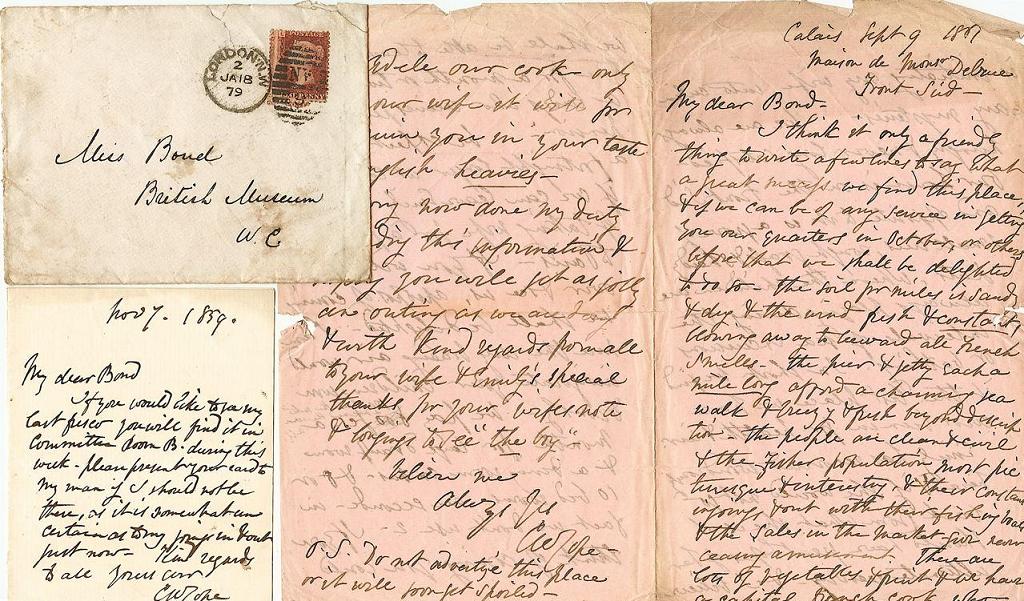 LONDON N.W
2
JA18
79
Miss Bond
British Museum
W.C
Nov 7. 1859.
My dear Bond
If you would like to see my
last fresco you will find it in
Committee Room B. during this
week - please present your card to
my man if I should not be
there, as it is somewhat un
certain as to my going in & out
just now - Kind regards
to all yours ever
CWCope
our cook only
your wife it will for
you in your taste
heavies -
now done my duty
this information &
you will get as jolly
an outing as we are
& with kind regards from all
to your wife & Emily's special
thanks for your wife's note
& longings to see "the boy" -
believe me
Always Yrs
CWCope -
P.S. Do not advertise this place
or it will soon get spoiled -
Calais Sept 9
Maison de Monsr
Front Sud -
My dear Bond -
I think it only a friendly
thing to write a few lines to say what
a great success we find this place,
& if we can be of any service in getting
you our quarters in October, or others
before that we shall be delighted
to do so - the soil for miles is sandy
& dry & the wind fresh & constant,
blowing away to leeward all French
smells - the pier & jetty each a
mile long afford a charming sea
walk & breezy & fresh beyond descrip
tion - the people are clean & civil
& the Fisher population most pic
turesque & interesting, & their constant
ingoings & out with their fishing
& the sales in the market give
ceasing amusement There are
lots of vegetables & fruit & we have
a capital French cook